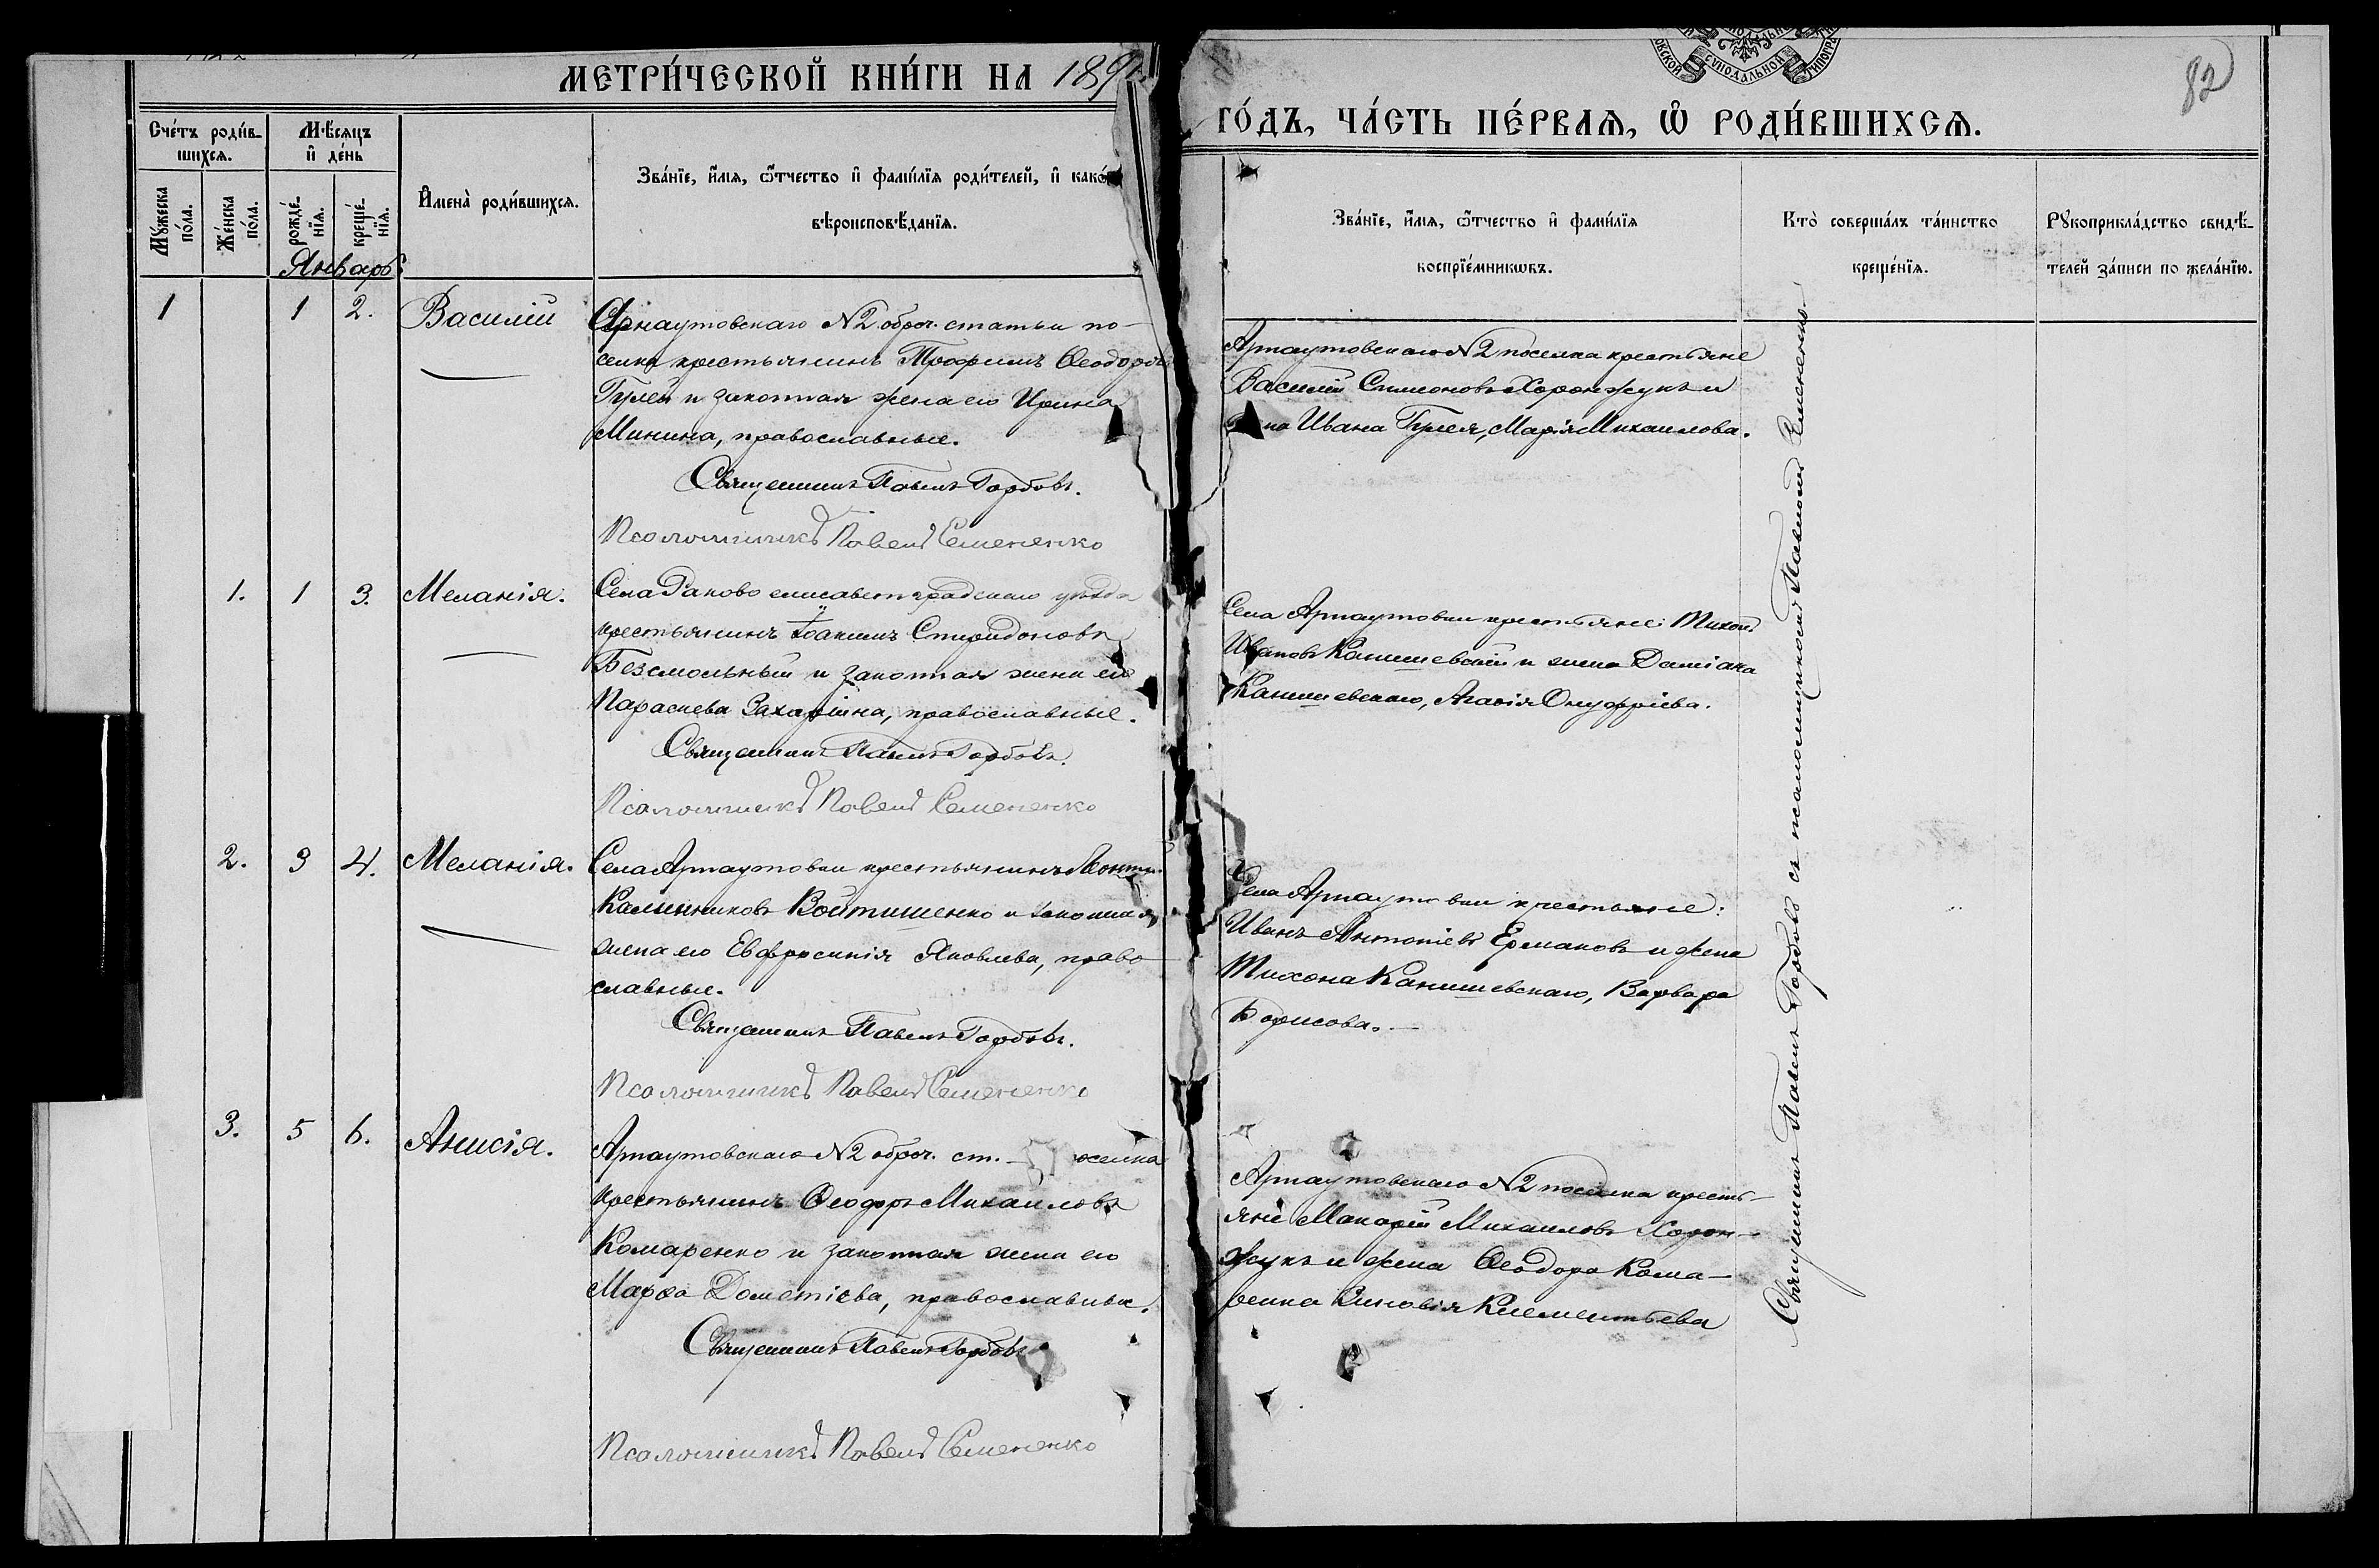 МЕТРИ́ЧЕСКОЙ КНИ́ГИ НА 189
ГО́ДЪ, ЧА́СТЬ ПЕ́РВАѦ, Ѡ РОДИ́ВШИХСѦ.
82
Сче́тъ роди́в-
шихсѧ.
Мѣ́сяцъ
и де́нь
Мꙋ́жеска
по́ла.
Же́нска
по́ла.
рожде́-
нїѧ.
креще́-
нїѧ.
Январь
Имена̀ роди́вшихсѧ.
Зва́нїе, и́мѧ, ѻ́тчество и фами́лїѧ роди́телей, и како́
вѣроисповѣ́данїѧ.
Зва́нїе, и́мѧ, ѻ́тчество и фами́лїѧ
воспрїе́мникѡвъ.
Кто̀ соверша́лъ та́инство
креще́нїѧ.
Рꙋкоприкла́дство свидѣ́-
телей за́писи по жела́нїю.
1 1 2. Василій
Арнаутовскаго N2 оброч. статьи по-
селка крестьянинъ Трофимъ Ѳеодоровъ
Гулей и законная жена его Ирина
Минина, православные.
Священникъ Павелъ Горбовъ.
Псаломщикъ Павелъ Семененко
Арнаутовскаго N2 поселка крестьяне
Василій Симеоновъ Харонжукъ и
на Ивана Гулея, Марія Михаилова.
1. 1 3. Меланія.
Села Раково елисаветградскаго уѣзда
крестьянинъ Іоакимъ Спиридоновъ
Безсмольный и законная жена его
Параскева Захаріина, православные.
Священникъ Павелъ Горбовъ.
Псаломщикъ Павелъ Семененко
Села Арнаутовки крестьяне: Тихонъ
Ивановъ Канишевскій и жена Даміана
Канишевскаго, Агафія Онуфріева.
2. 3 4. Меланія.
Села Арнаутовки крестьянинъ
Калинниковъ Войтишенко и законная
жена его Евфросинія Яковлева, право
славные.
Священникъ Павелъ Горбовъ.
Псаломщикъ Павелъ Семененко
Села Арнаутовки крестьяне:
Иванъ Антоніевъ Ермаковъ и жена
Тихона Канишевскаго, Варвара
Борисова.
3. 5 6. Анисія.
Арнаутовскаго N2 оброч. ст. оселка
крестьянинъ Ѳеодоръ Михаиловъ
Комаренко и законная жена его
Марѳа Дометіева, православные.
Священникъ Павелъ Горбовъ
Псаломщикъ Павелъ Семененко
Арнаутовскаго N2 поселка кресть-
яне Макарій Михаиловъ Харон-
жукъ и жена Ѳеодора Кома-
ренка Зиновія Климентьева
Священникъ Павелъ Горбовъ съ псаломщикомъ Павломъ Семененко